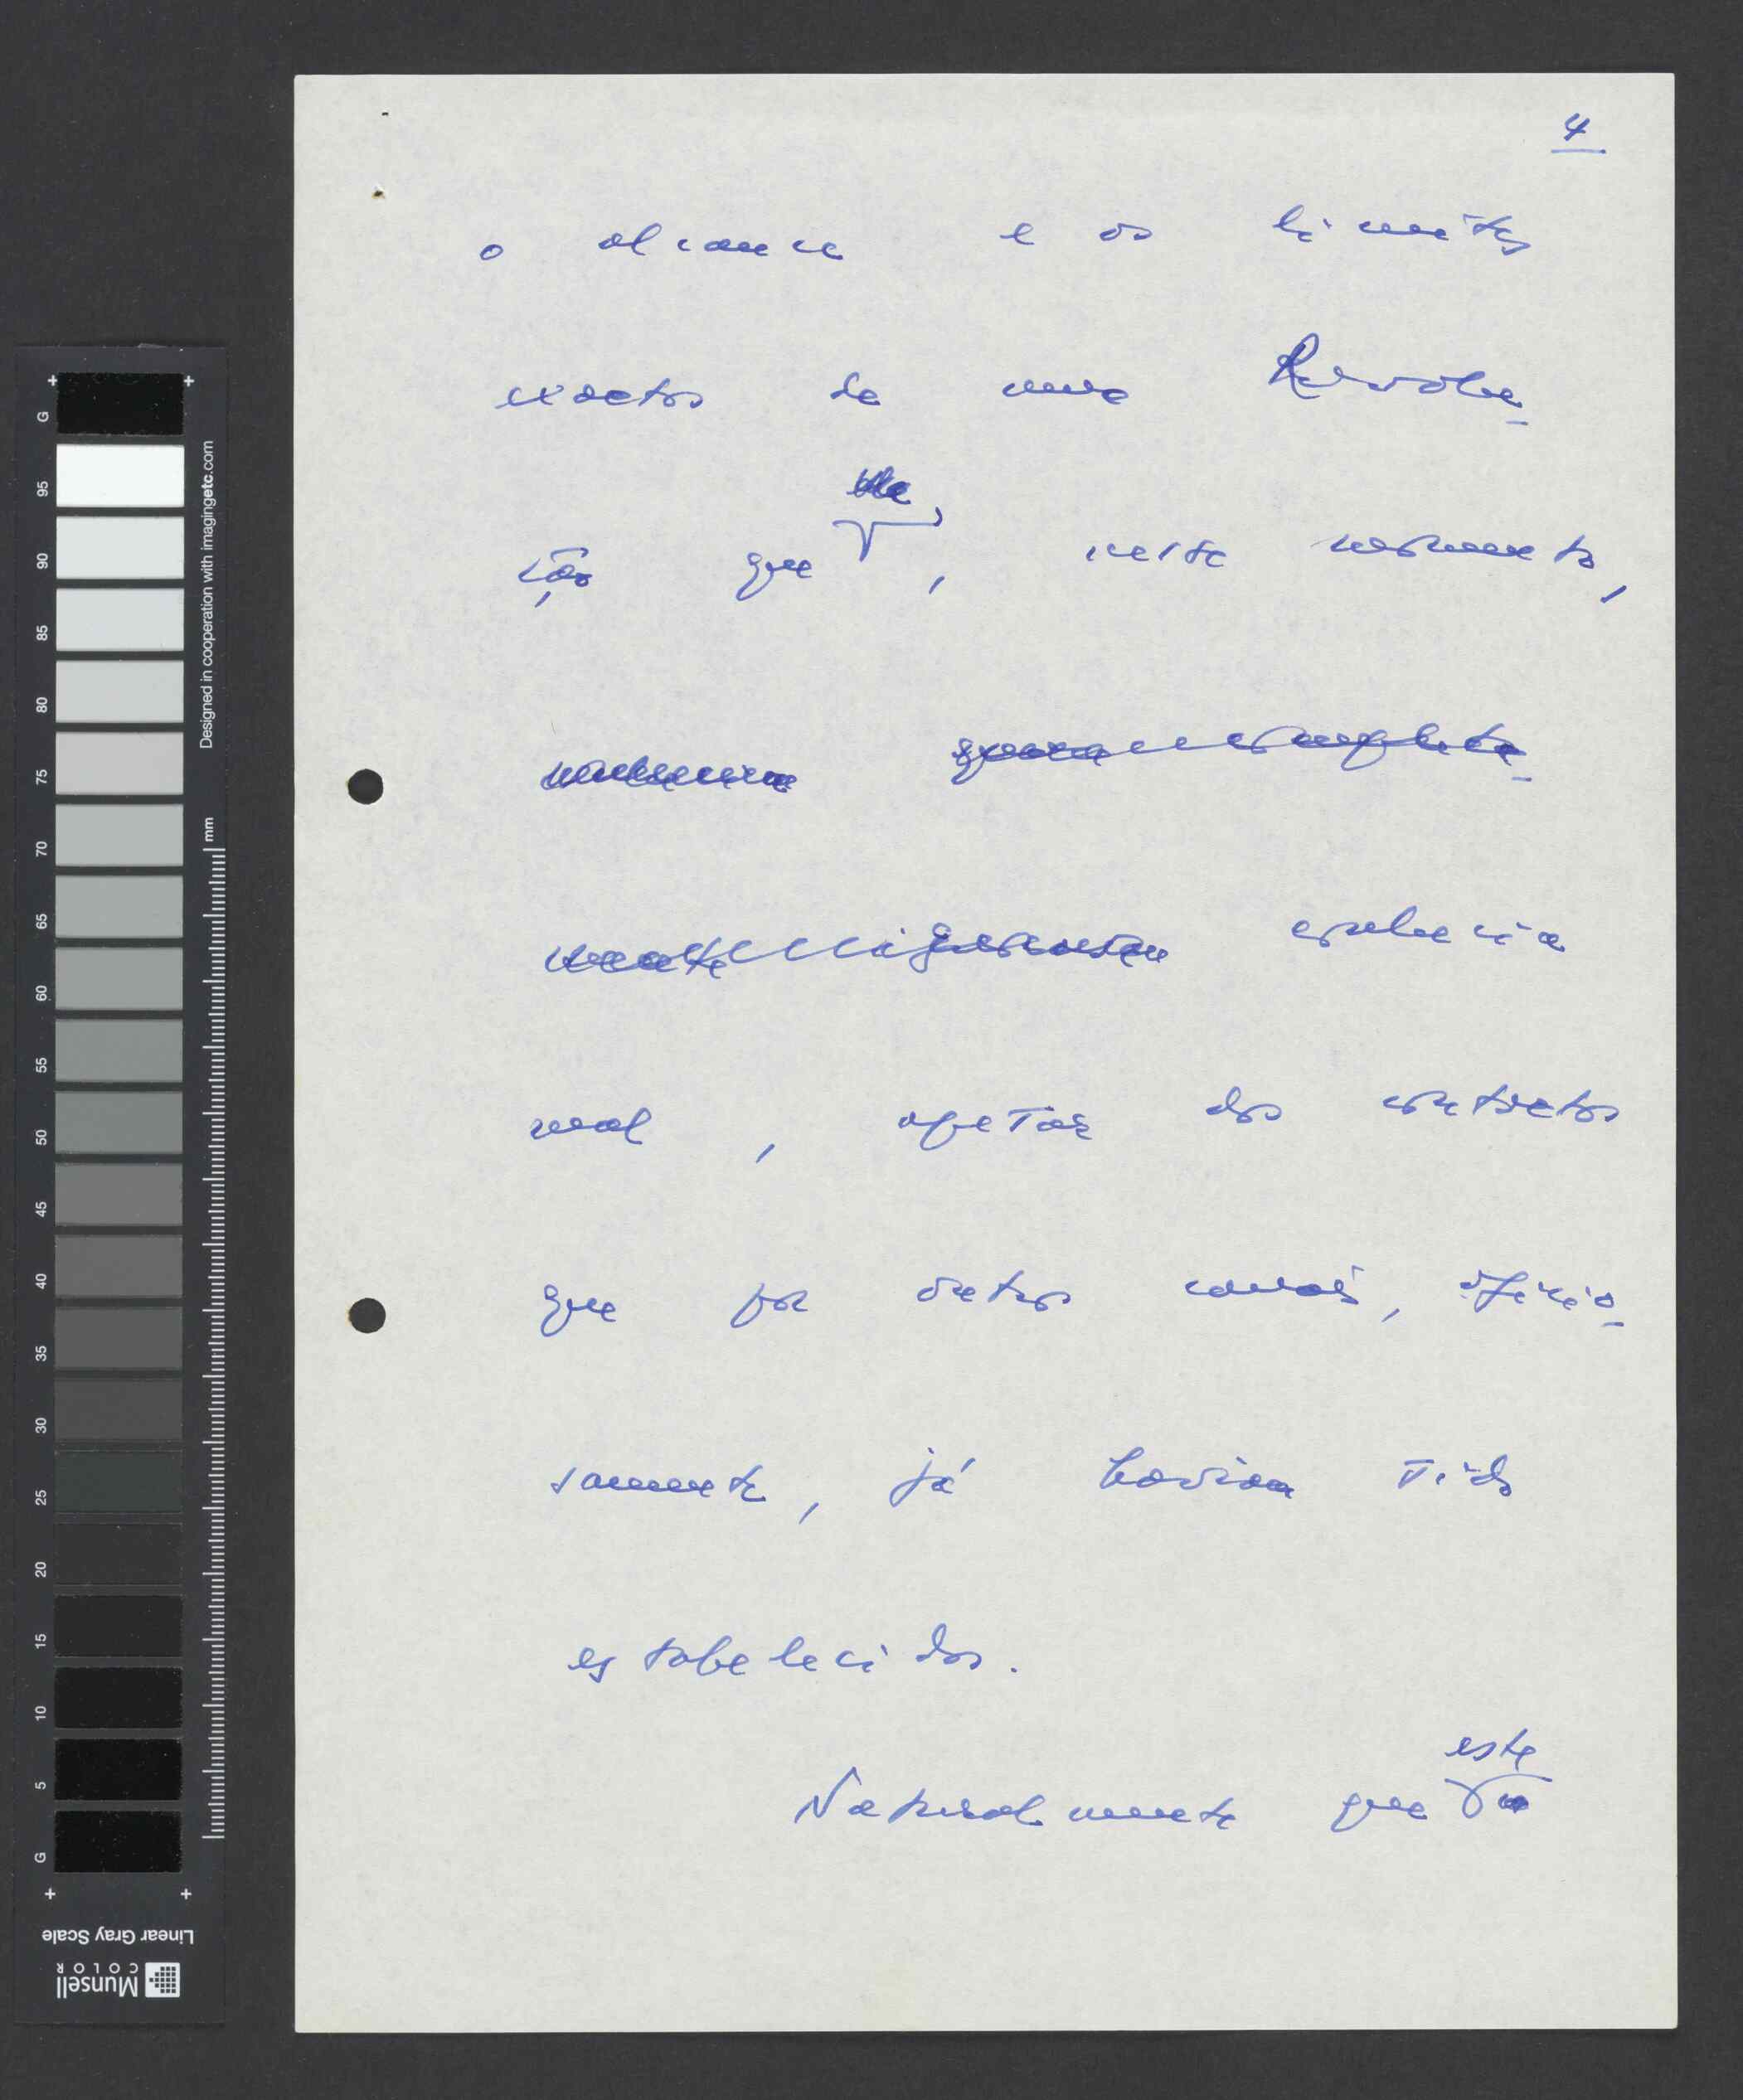 4
o alcance e os limites
exactos de uma Revolu-
ção que, neste momento,
conhecia
mal, apesar dos contactos
que por outros canais, oficio-
samente, já haviam sido
estabelecidos.
este
Naturalmente que
G 95 90 85 80 75 70 65 60 55 50 45 40 35 30 25 20 15 10 5 G
Designed in cooperation with imagingetc.com
mm
Linear Gray Scale
Munsell
COLOR